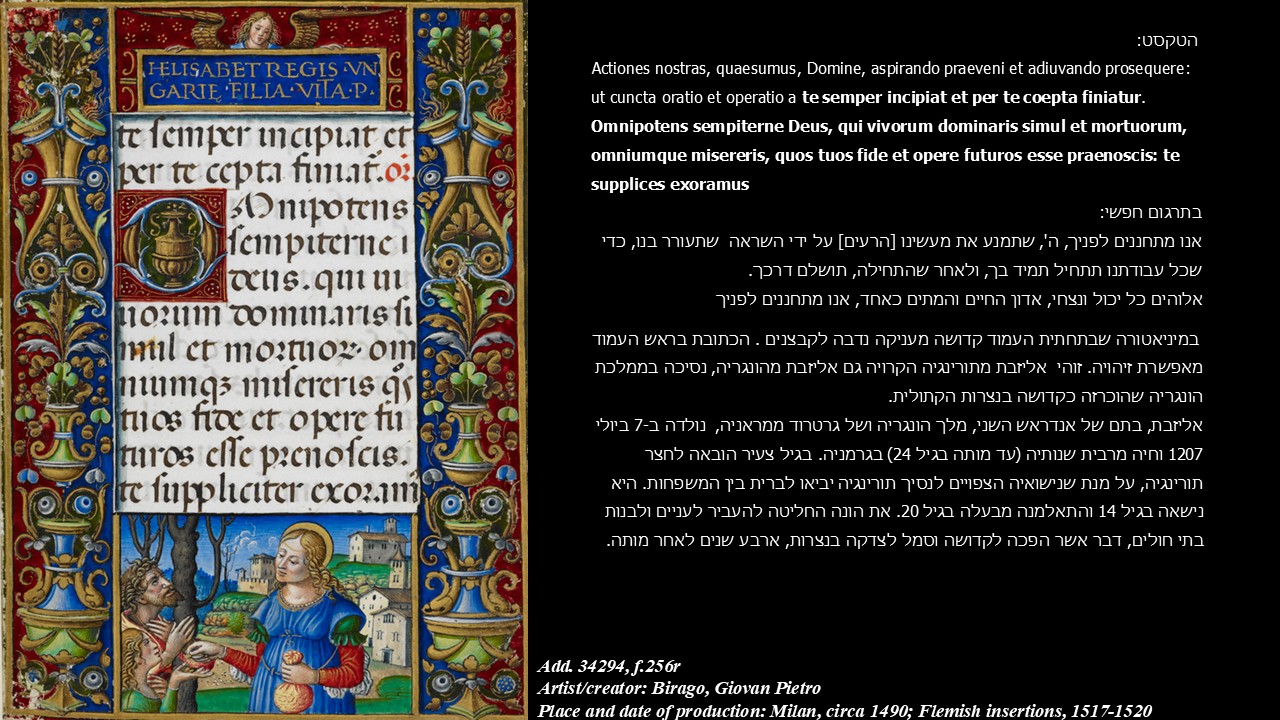 HELISABET REGIS VN
GARIĘ FILIA VITA P.
te semper incipiat et
per te cepta finiat. or
Omnipotens
sempiterne
deus. qui vi
uorum dominaris si
mul et mortuor. om
niumqʒ misereris qͦs
tuos fide et opere fu
turos esse prenoscis.
te suppliciter exoram
הטקסט:
Actiones nostras, quaesumus, Domine, aspirando praeveni et adiuvando prosequere:
ut cuncta oratio et operatio a te semper incipiat et per te coepta finiatur.
Omnipotens sempiterne Deus, qui vivorum dominaris simul et mortuorum,
omniumque misereris, quos tuos fide et opere futuros esse praenoscis: te
supplices exoramus
בתרגום חפשי:
אנו מתחננים לפניך, ה', שתמנע את מעשינו [הרעים] על ידי השראה שתעורר בנו, כדי
שכל עבודתנו תתחיל תמיד בך, ולאחר שהתחילה, תושלם דרכך.
אלוהים כל יכול ונצחי, אדון החיים והמתים כאחד, אנו מתחננים לפניך
במיניאטורה שבתחתית העמוד קדושה מעניקה נדבה לקבצנים . הכתובת בראש העמוד
מאפשרת זיהויה. זוהי אליזבת מתורינגיה הקרויה גם אליזבת מהונגריה, נסיכה בממלכת
הונגריה שהוכרזה כקדושה בנצרות הקתולית.
אליזבת, בתם של אנדראש השני, מלך הונגריה ושל גרטרוד ממראניה, נולדה ב-7 ביולי
1207 וחיה מרבית שנותיה (עד מותה בגיל 24) בגרמניה. בגיל צעיר הובאה לחצר
תורינגיה, על מנת שנישואיה הצפויים לנסיך תורינגיה יביאו לברית בין המשפחות. היא
נישאה בגיל 14 והתאלמנה מבעלה בגיל 20. את הונה החליטה להעביר לעניים ולבנות
בתי חולים, דבר אשר הפכה לקדושה וסמל לצדקה בנצרות, ארבע שנים לאחר מותה.
Add. 34294, f.256r
Artist/creator: Birago, Giovan Pietro
Place and date of production: Milan, circa 1490; Flemish insertions, 1517-1520